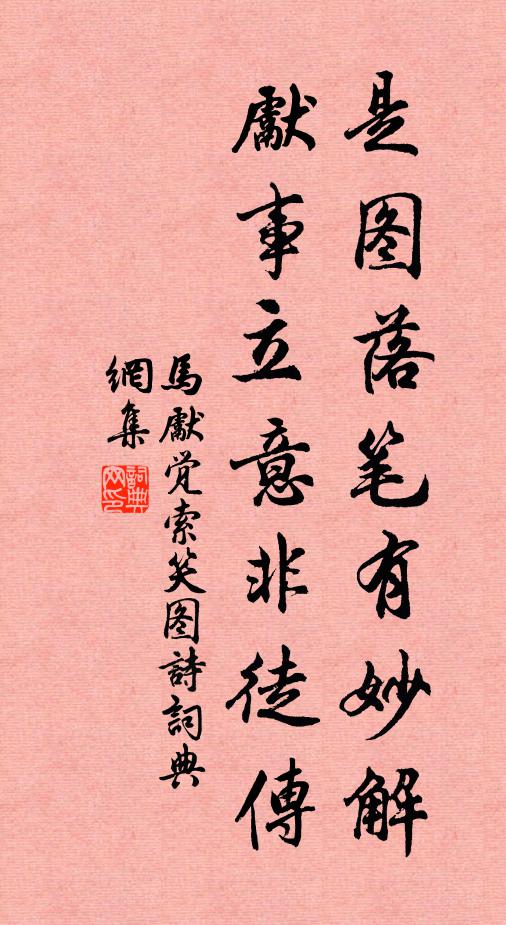 是图落笔有妙解
獻事立意非徒傳
馬獻觉索笑图詩詞典
網集
詞典網印